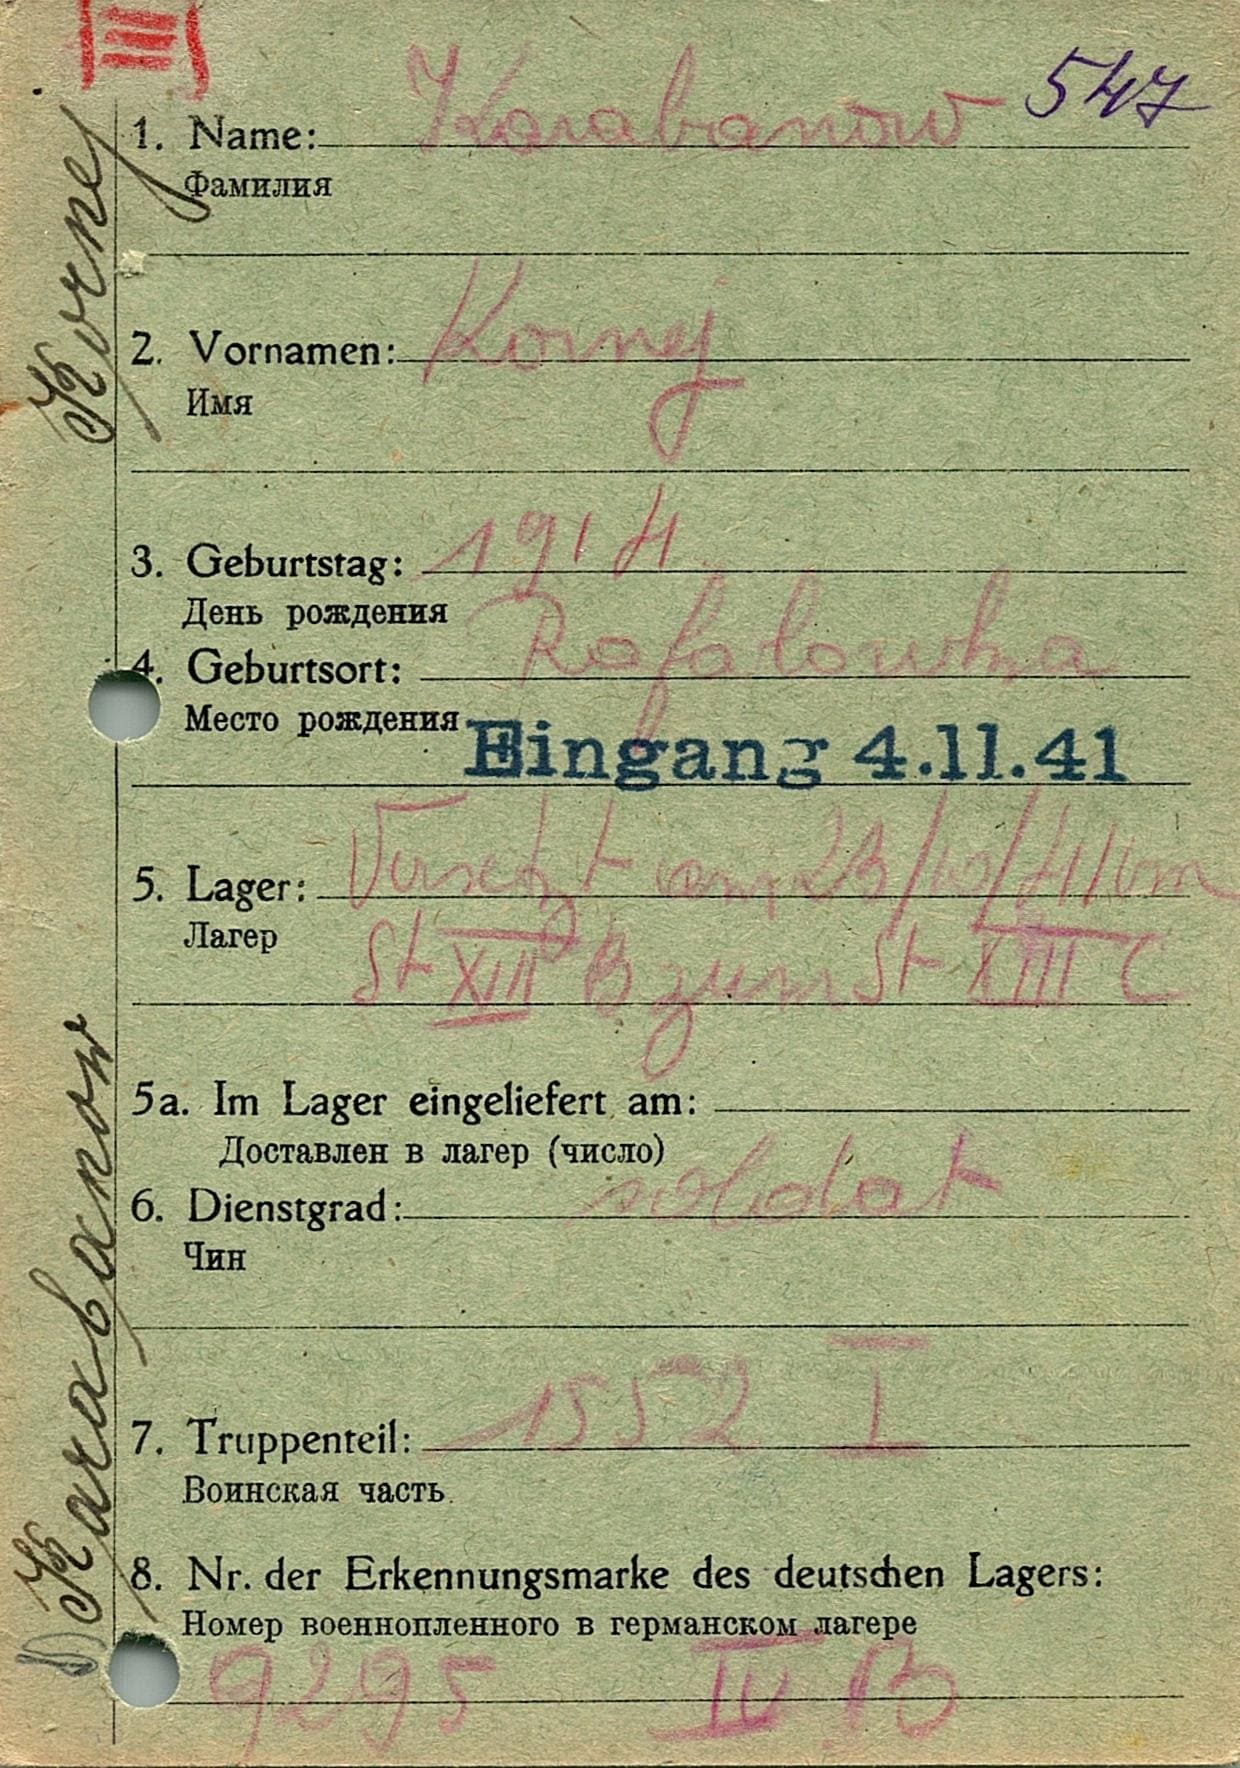 III
547
1. Name: Karabanow
Фамилия
2. Vornamen: Kornej
Имя
3. Geburtstag: 1914
День рождения
4. Geburtsort: Rafalowka
Место рождения
Eingang 4.11.41
5. Lager: Versetzt am 23/10/41 vom
Лагер
St XIII B zum St XIII C
5a. Im Lager eingeliefert am:
Доставлен в лагер (число)
6. Dienstgrad: soldat
Чин
7. Truppenteil: 1552 I
Воинская часть
8. Nr. der Erkennungsmarke des deutschen Lagers:
Номер военнопленного в германском лагере
9295 IV B
Karabanow Kornej